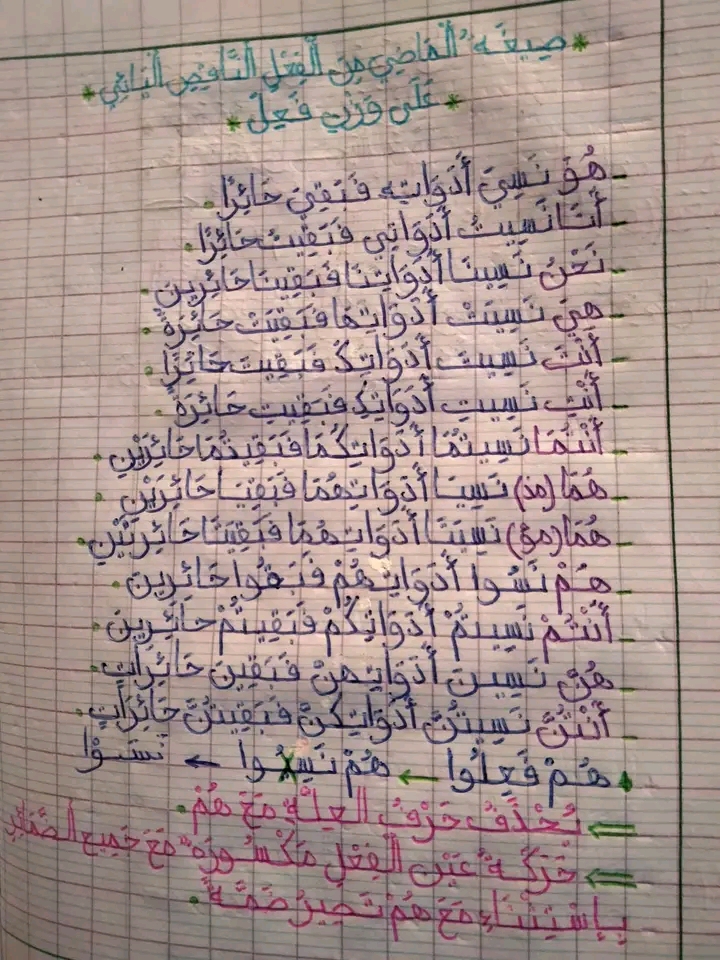 * صِيغَةُ الْمَاضِي مِنَ الْفِعْلِ النَّاقِصِ الْيَائِيِّ *
* عَلَى وَزْنِ فَعِلَ *
- هُوَ نَسِيَ أَدَوَاتِهِ فَبَقِيَ حَائِرًا.
- أَنَا نَسِيتُ أَدَوَاتِي فَبَقِيتُ حَائِرًا.
- نَحْنُ نَسِينَا أَدَوَاتِنَا فَبَقِينَا حَائِرِينَ.
- هِيَ نَسِيَتْ أَدَوَاتِهَا فَبَقِيَتْ حَائِرَةً.
- أَنْتَ نَسِيتَ أَدَوَاتِكَ فَبَقِيتَ حَائِرًا.
- أَنْتِ نَسِيتِ أَدَوَاتِكِ فَبَقِيتِ حَائِرَةً.
- أَنْتُمَا نَسِيتُمَا أَدَوَاتِكُمَا فَبَقِيتُمَا حَائِرَيْنِ.
- هُمَا (مذ) نَسِيَا أَدَوَاتِهُمَا فَبَقِيَا حَائِرَيْنِ.
- هُمَا (مؤ) نَسِيَتَا أَدَوَاتِهُمَا فَبَقِيَتَا حَائِرَتَيْنِ.
- هُمْ نَسُوا أَدَوَاتِهُمْ فَبَقُوا حَائِرِينَ.
- أَنْتُمْ نَسِيتُمْ أَدَوَاتِكُمْ فَبَقِيتُمْ حَائِرِينَ.
- هُنَّ نَسِينَ أَدَوَاتِهِنَّ فَبَقِينَ حَائِرَاتٍ.
- أَنْتُنَّ نَسِيتُنَّ أَدَوَاتِكُنَّ فَبَقِيتُنَّ حَائِرَاتٍ.
هُمْ فَعِلُوا ← هُمْ نَسِيُوا ← نَسُوْا
⇐ يُحْذَفُ حَرْفُ الْعِلَّةِ مَعَ هُمْ.
⇐ حَرَكَةُ عَيْنِ الْفِعْلِ مَكْسُورَةٌ مَعَ جَمِيعِ الضَّمَائِرِ
بِاسْتِثْنَاءِ مَعَ هُمْ تَصِيرُ ضَمَّةً.